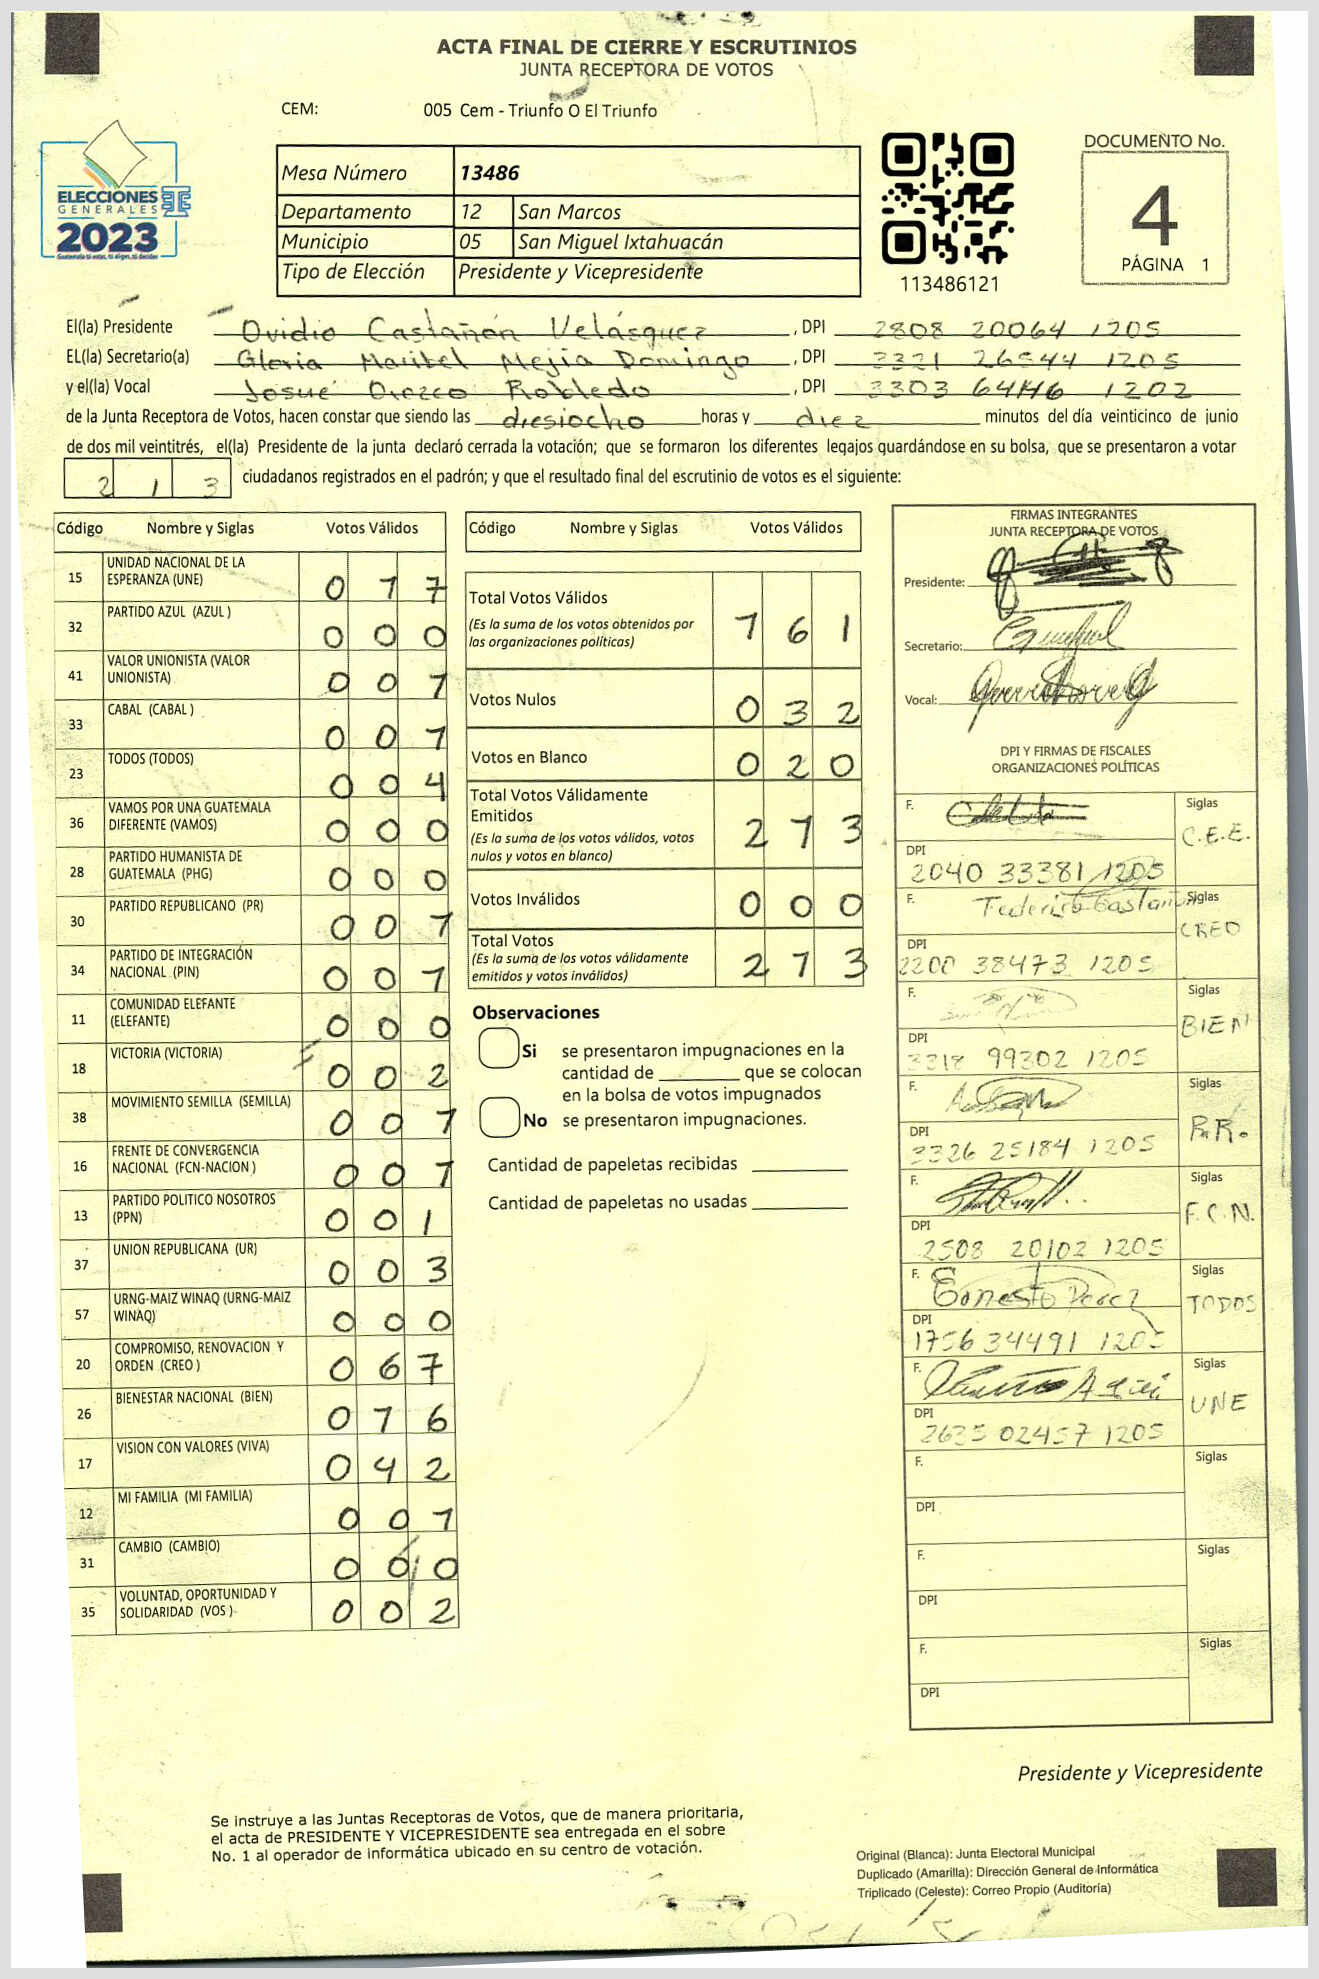 ACTA FINAL DE CIERRE Y ESCRUTINIOS
JUNTA RECEPTORA DE VOTOS
CEM: 005 Cem - Triunfo O El Triunfo
ELECCIONES
GENERALES
2023
Guatemala tú votas, tú eliges, tú decides
Mesa Número 13486
Departamento 12 San Marcos
Municipio 05 San Miguel Ixtahuacán
Tipo de Elección Presidente y Vicepresidente
113486121
DOCUMENTO No.
4
PÁGINA 1
El(la) Presidente Ovidio Castañón Velásquez, DPI 2808 20064 1205
EL(la) Secretario(a) Gloria Maribel Mejia Domingo, DPI 3321 26544 1205
y el(la) Vocal Josué Orozco Robledo, DPI 3303 64146 1202
de la Junta Receptora de Votos, hacen constar que siendo las diesiocho horas y diez minutos del día veinticinco de junio
de dos mil veintitrés, el(la) Presidente de la junta declaró cerrada la votación; que se formaron los diferentes legajos guardándose en su bolsa, que se presentaron a votar
2 1 3 ciudadanos registrados en el padrón; y que el resultado final del escrutinio de votos es el siguiente:
Código Nombre y Siglas Votos Válidos
15 UNIDAD NACIONAL DE LA
ESPERANZA (UNE) 0 1 7
32 PARTIDO AZUL (AZUL ) 0 0 0
41 VALOR UNIONISTA (VALOR
UNIONISTA) 0 0 1
33 CABAL (CABAL ) 0 0 1
23 TODOS (TODOS) 0 0 4
36 VAMOS POR UNA GUATEMALA
DIFERENTE (VAMOS) 0 0 0
28 PARTIDO HUMANISTA DE
GUATEMALA (PHG) 0 0 0
30 PARTIDO REPUBLICANO (PR) 0 0 1
34 PARTIDO DE INTEGRACIÓN
NACIONAL (PIN) 0 0 1
11 COMUNIDAD ELEFANTE
(ELEFANTE) 0 0 0
18 VICTORIA (VICTORIA) 0 0 2
38 MOVIMIENTO SEMILLA (SEMILLA) 0 0 1
16 FRENTE DE CONVERGENCIA
NACIONAL (FCN-NACION ) 0 0 1
13 PARTIDO POLITICO NOSOTROS
(PPN) 0 0 1
37 UNION REPUBLICANA (UR) 0 0 3
57 URNG-MAIZ WINAQ (URNG-MAIZ
WINAQ) 0 0 0
20 COMPROMISO, RENOVACION Y
ORDEN (CREO ) 0 6 7
26 BIENESTAR NACIONAL (BIEN) 0 1 6
17 VISION CON VALORES (VIVA) 0 4 2
12 MI FAMILIA (MI FAMILIA) 0 0 1
31 CAMBIO (CAMBIO) 0 0 0
35 VOLUNTAD, OPORTUNIDAD Y
SOLIDARIDAD (VOS ) 0 0 2
Código Nombre y Siglas Votos Válidos
Total Votos Válidos 1 6 1
(Es la suma de los votos obtenidos por
las organizaciones políticas)
Votos Nulos 0 3 2
Votos en Blanco 0 2 0
Total Votos Válidamente
Emitidos 2 1 3
(Es la suma de los votos válidos, votos
nulos y votos en blanco)
Votos Inválidos 0 0 0
Total Votos 2 1 3
(Es la suma de los votos válidamente
emitidos y votos inválidos)
Observaciones
Si se presentaron impugnaciones en la
cantidad de ________ que se colocan
en la bolsa de votos impugnados
No se presentaron impugnaciones.
Cantidad de papeletas recibidas
Cantidad de papeletas no usadas
FIRMAS INTEGRANTES
JUNTA RECEPTORA DE VOTOS
Presidente:
Secretario:
Vocal:
DPI Y FIRMAS DE FISCALES
ORGANIZACIONES POLÍTICAS
F. Siglas
C.E.E.
DPI
2040 33381 1205
F. Federico Castañon Siglas
CREO
DPI
2200 38473 1205
F. Siglas
BIEN
DPI
3318 99302 1205
F. Siglas
P.R.
DPI
3326 25184 1205
F. Siglas
F.C.N.
DPI
2508 20102 1205
F. Ernesto Perez Siglas
TODOS
DPI
1756 34491 1205
F. Siglas
UNE
DPI
2635 02457 1205
F. Siglas
DPI
F. Siglas
DPI
F. Siglas
DPI
Presidente y Vicepresidente
Se instruye a las Juntas Receptoras de Votos, que de manera prioritaria,
el acta de PRESIDENTE Y VICEPRESIDENTE sea entregada en el sobre
No. 1 al operador de informática ubicado en su centro de votación.
Original (Blanca): Junta Electoral Municipal
Duplicado (Amarilla): Dirección General de Informática
Triplicado (Celeste): Correo Propio (Auditoría)